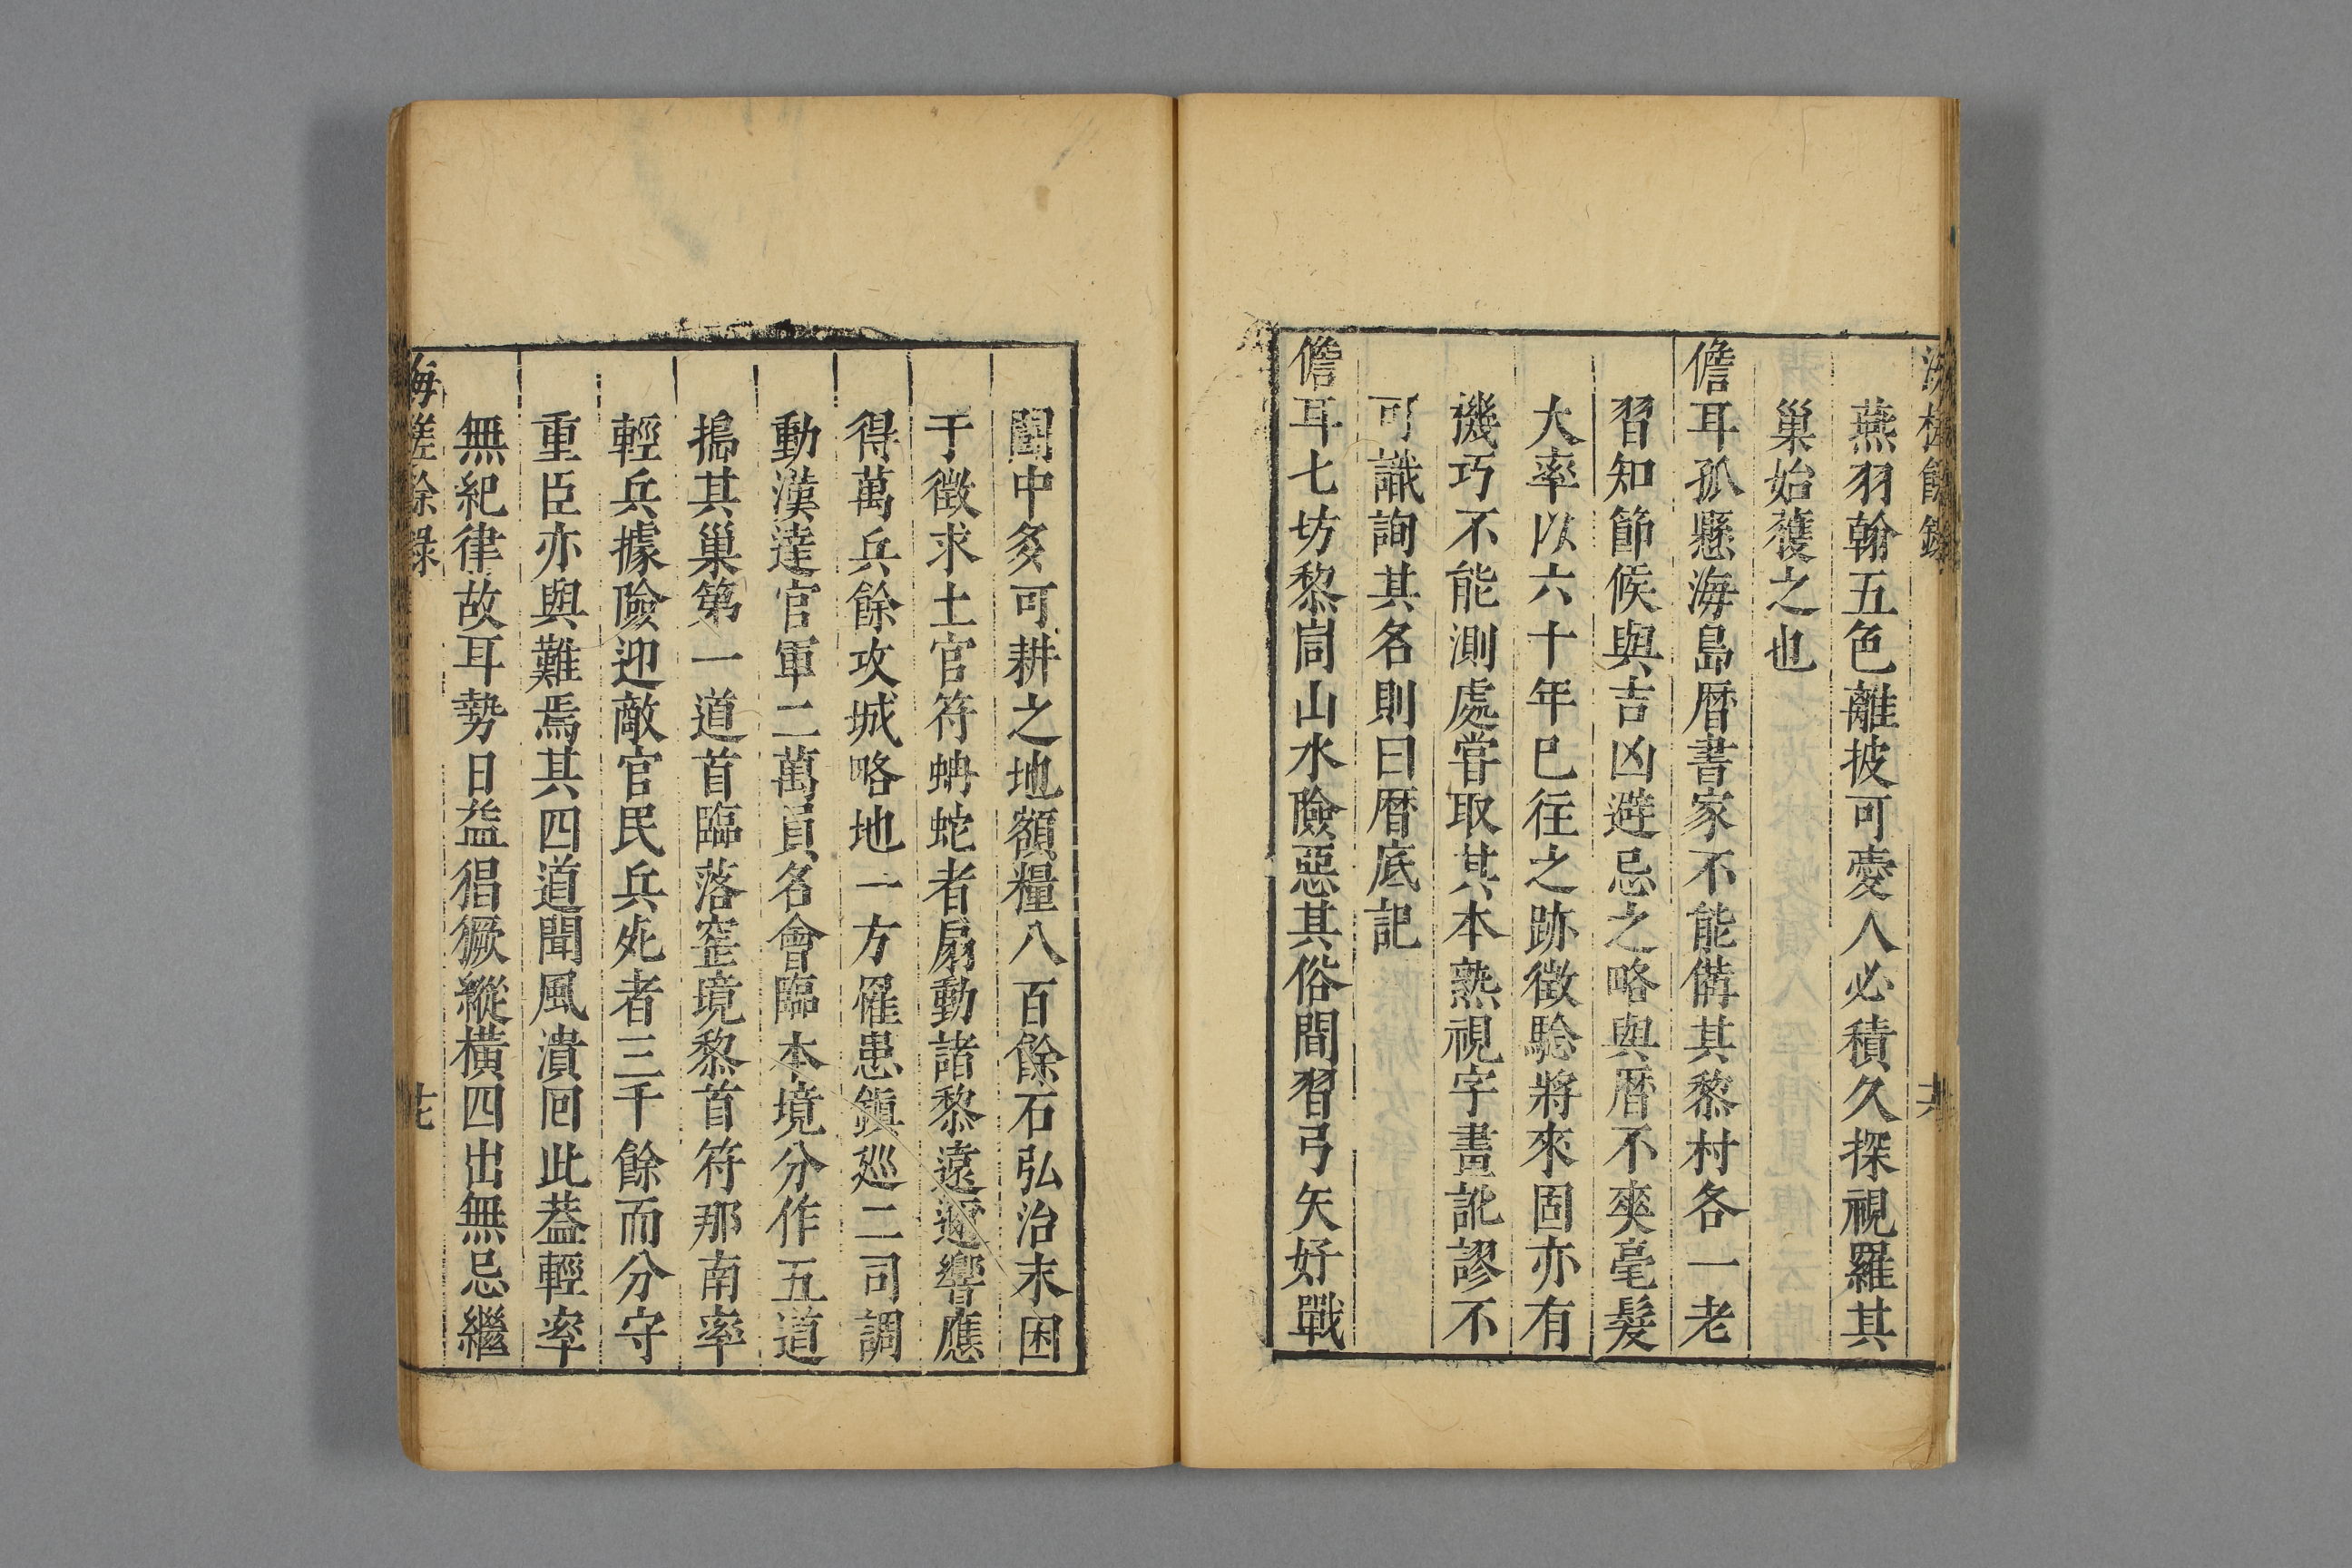 海槎餘錄
燕羽翰五色離披可愛人必積久探視羅其
巢始獲之也
儋耳孤懸海島曆書家不能備其黎村各一老
習知節候與吉凶避忌之略與曆不爽毫髮
大率以六十年已往之跡徵驗將來固亦有
機巧不能測處嘗取其本熟視字畫訛謬不
可識詢其名則曰曆底記
儋耳七坊黎峒山水險惡其俗閒習弓矢好戰
閫中多可耕之地額糧八百餘石弘治末困
于徵求土官符蚺蛇者扇動諸黎遠邇響應
得萬兵餘攻城略地一方罹患鎭廵二司調
動漢達官軍二萬員名會臨本境分作五道
搗其巢第一道首臨落窰境黎首符那南率
輕兵據險迎敵官民兵死者三千餘而分守
重臣亦與難焉其四道聞風潰囘此葢輕率
無紀律故耳勢日益猖獗縱橫四出無忌繼
海槎餘錄